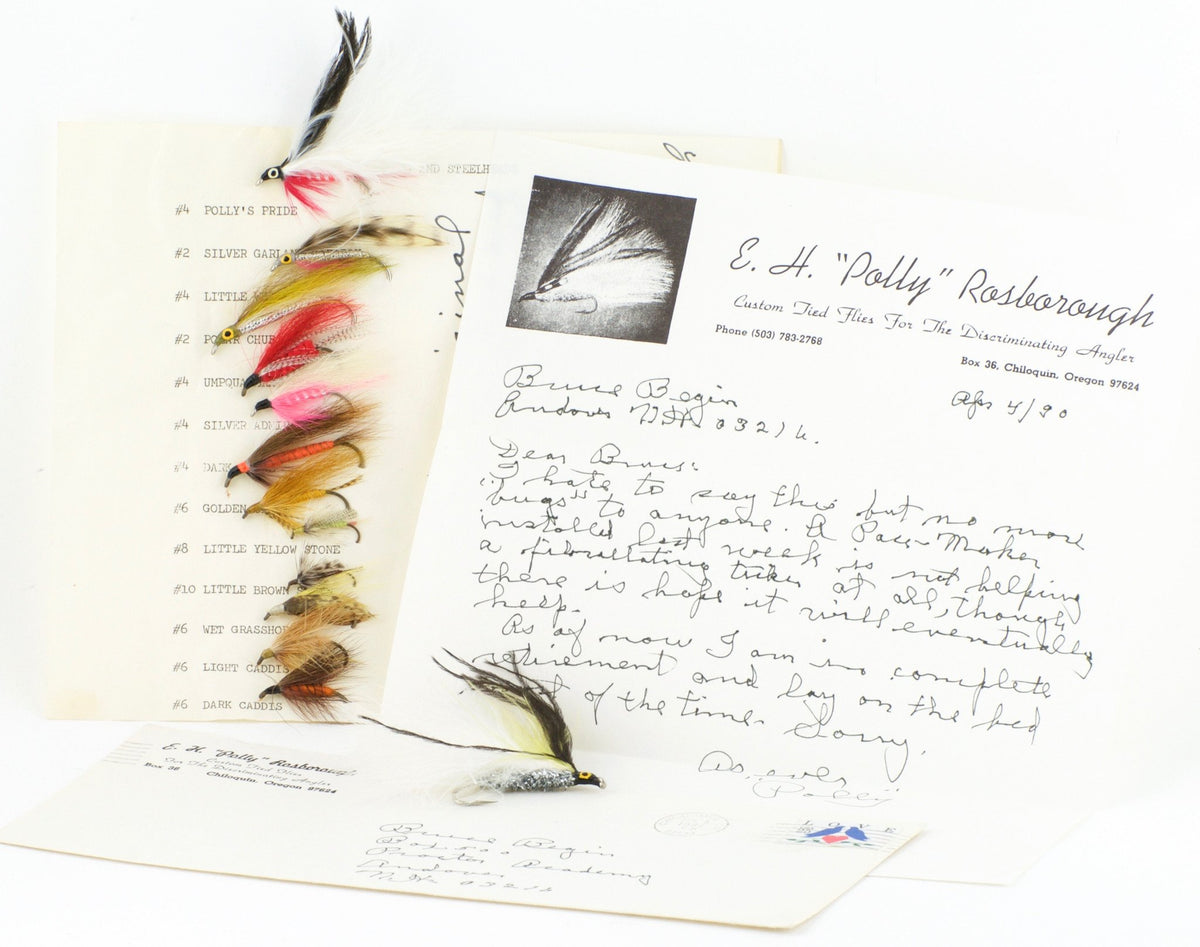 2ND STEELH
#4 POLLY'S PRIDE
#2 SILVER GARL
#4 LITTLE
#2 POLAR CHUB
#4 UMPQUA
#4 SILVER ADMIR
#4 DARK
#6 GOLDEN
#8 LITTLE YELLOW STONE
#10 LITTLE BROWN
#6 WET GRASSHOP
#6 LIGHT CADDIS
#6 DARK CADDIS
inal
E. H. "Polly" Rosborough
Custom Tied Flies For The Discriminating Angler
Phone (503) 783-2768
Box 36, Chiloquin, Oregon 97624
Apr 4/90
Bruce Begin
Andover N.H. 03216.
Dear Bruce:
I hate to say this but no more
"bugs" to anyone. A Pace-Maker
installed last week is not helping
a fibrillating ticker at all, though
there is hope it will eventually
help.
As of now I am in complete
retirement and lay on the bed
of the time. Sorry,
As ever
Polly
E. H. "Polly" Rosborough
Custom Tied Flies
For The Discriminating Angler
Box 36 Chiloquin, Oregon 97624
Bruce Begin
Proctor Academy
Andover
N.H. 03216
LOVE